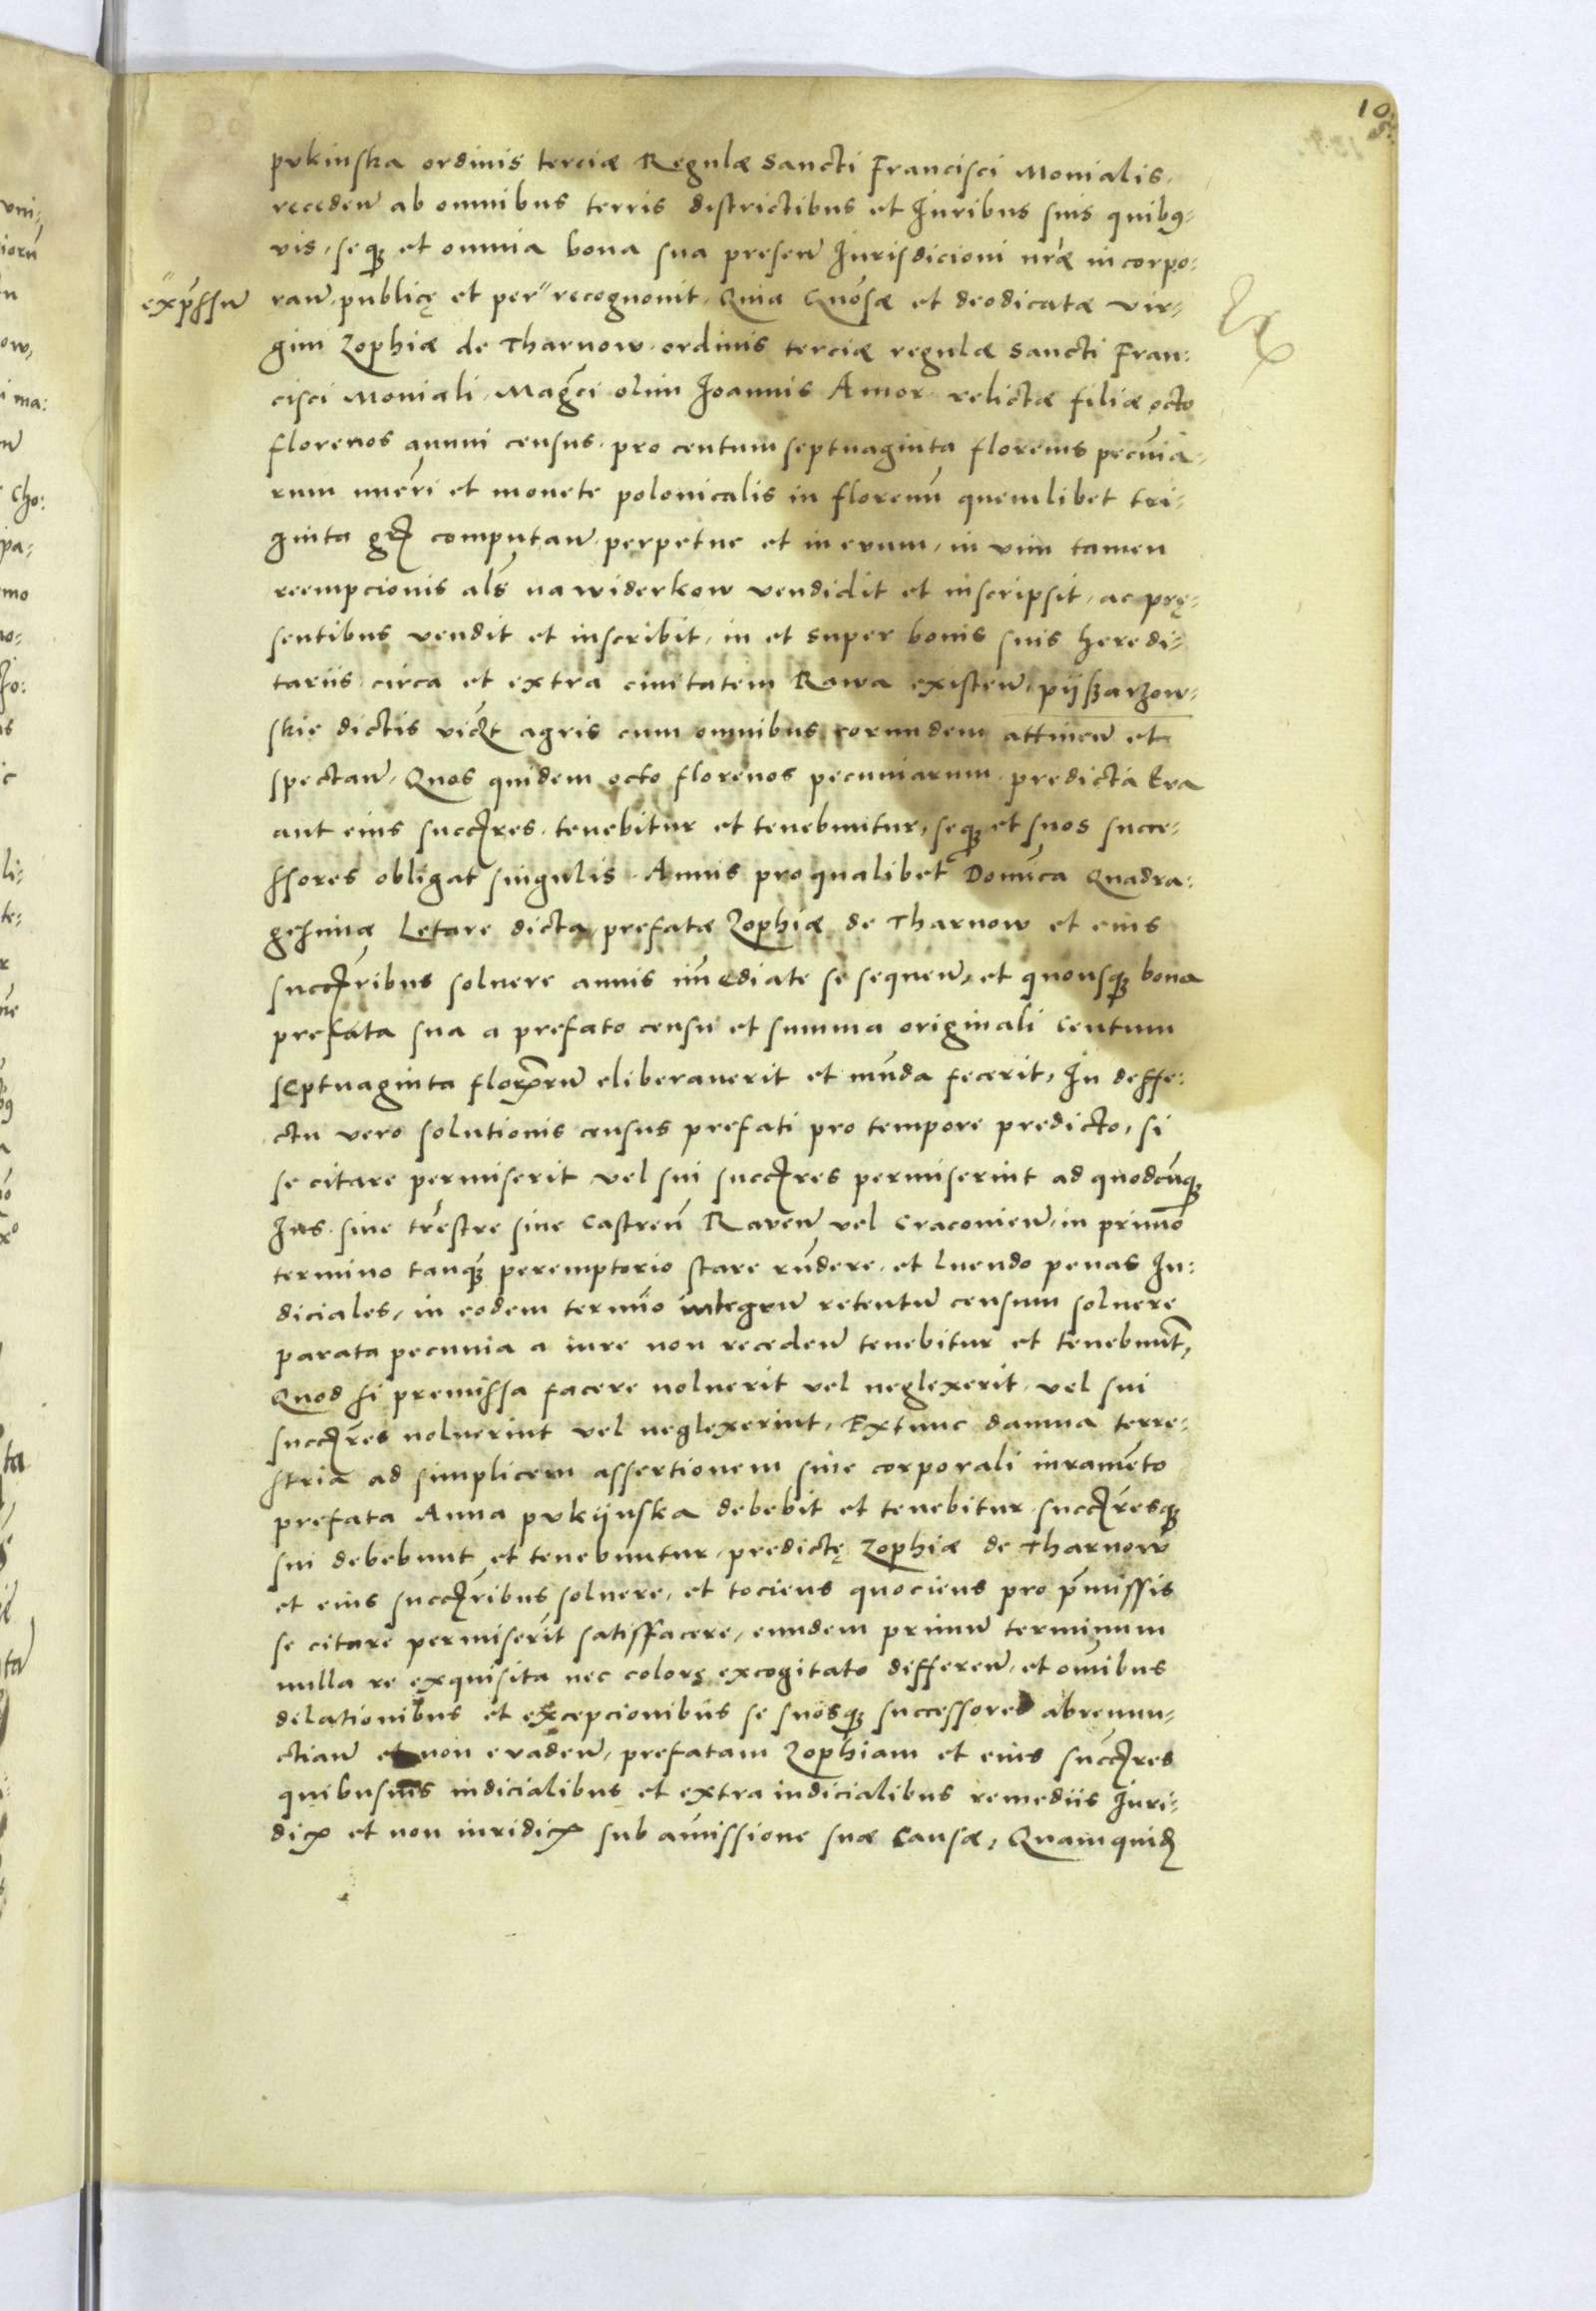 10
pukinska ordinis terciæ Regulæ Sancti Francisci Monialis,
receden̄ ab omnibus terris districtibus et Juribus suis quibq-
vis, seq₃ et omnia bona sua presen̄ Jurisdicioni nr̄æ incorpo:
expr̄ssū
ran̄, publicę et per" recognovit, Quia Gnōsæ et deodicatæ vir-
gini Zophiæ de Tharnow ordinis terciæ regulæ Sancti Fran:
cisci Moniali, Magcī olim Joannis Amor relictæ filiæ octo
florenos annui census, pro centum septuaginta florenis pecūia-
rum nuēri et monete polonicalis in florenū quemlibet tri-
ginta gr̄ computan̄ perpetue et in evum, in vim tamen
reempcionis al̄s na widerkow vendidit et inscripsit, ac prę-
sentibus vendit et inscribit, in et super bonis suis heredi-
tariis circa et extra civitatem Rawa existen̄, pijsarzow-
skie dictis vicƺt agris cum omnibus eorundem attinen̄ et
spectan̄, Quos quidem octo florenos pecuniarum predicta
aut eius succr̄es tenebitur et tenebuntur, seq₃ et suos succe-
ssores obligat singulis Annis pro qualibet Domīca Quadra:
gesimæ Letare dicta, prefatæ Zophiæ de Tharnow et eius
succr̄ibus solvere annis im̄ediate se sequen̄, et quousq₃ bona
prefata sua a prefato censu et summa originali Centum
septuaginta florenorū eliberaverit et mūda fecerit, In deffe:
ctu vero solutionis census prefati pro tempore predicto, si
se citare permiserit vel sui succr̄es permiserint ad quodcūq₃
Jus sive tr̄estre sive Castren̄ Raven̄ vel Cracovien̄, in primo
termino tanq₃ peremptorio stare rn̄dere, et luendo penas Ju:
diciales, in eodem termīo integrū retentū censum solvere
parata pecunia a iure non receden̄ tenebitur et tenebunt̄,
Quod si premissa facere noluerit vel neglexerit, vel sui
succr̄es noluerint vel neglexerint, Extunc damna terre-
stria ad simplicem assertionem sine corporali iuramēto
prefata Anna pukijnska debebit et tenebitur succr̄esq₃
sui debebunt et tenebuntur, predictę Zophiæ de Tharnow
et eius succr̄ibus solvere, et tociens quociens pro p̄missis
se citare permiserit satisfacere, eundem primū terminum
nulla re exquisita nec colore excogitato differen̄, et om̄ibus
dilationibus et excepcionibus se suosq₃ successores abrenun-
ctian̄ et non evaden̄, prefatam Zophiam et eius succr̄es
quibusvis iudicialibus et extra iudicialibus remediis Juri-
dicƺ et non iuridicƺ sub amissione suæ Causæ, Quam quid̄